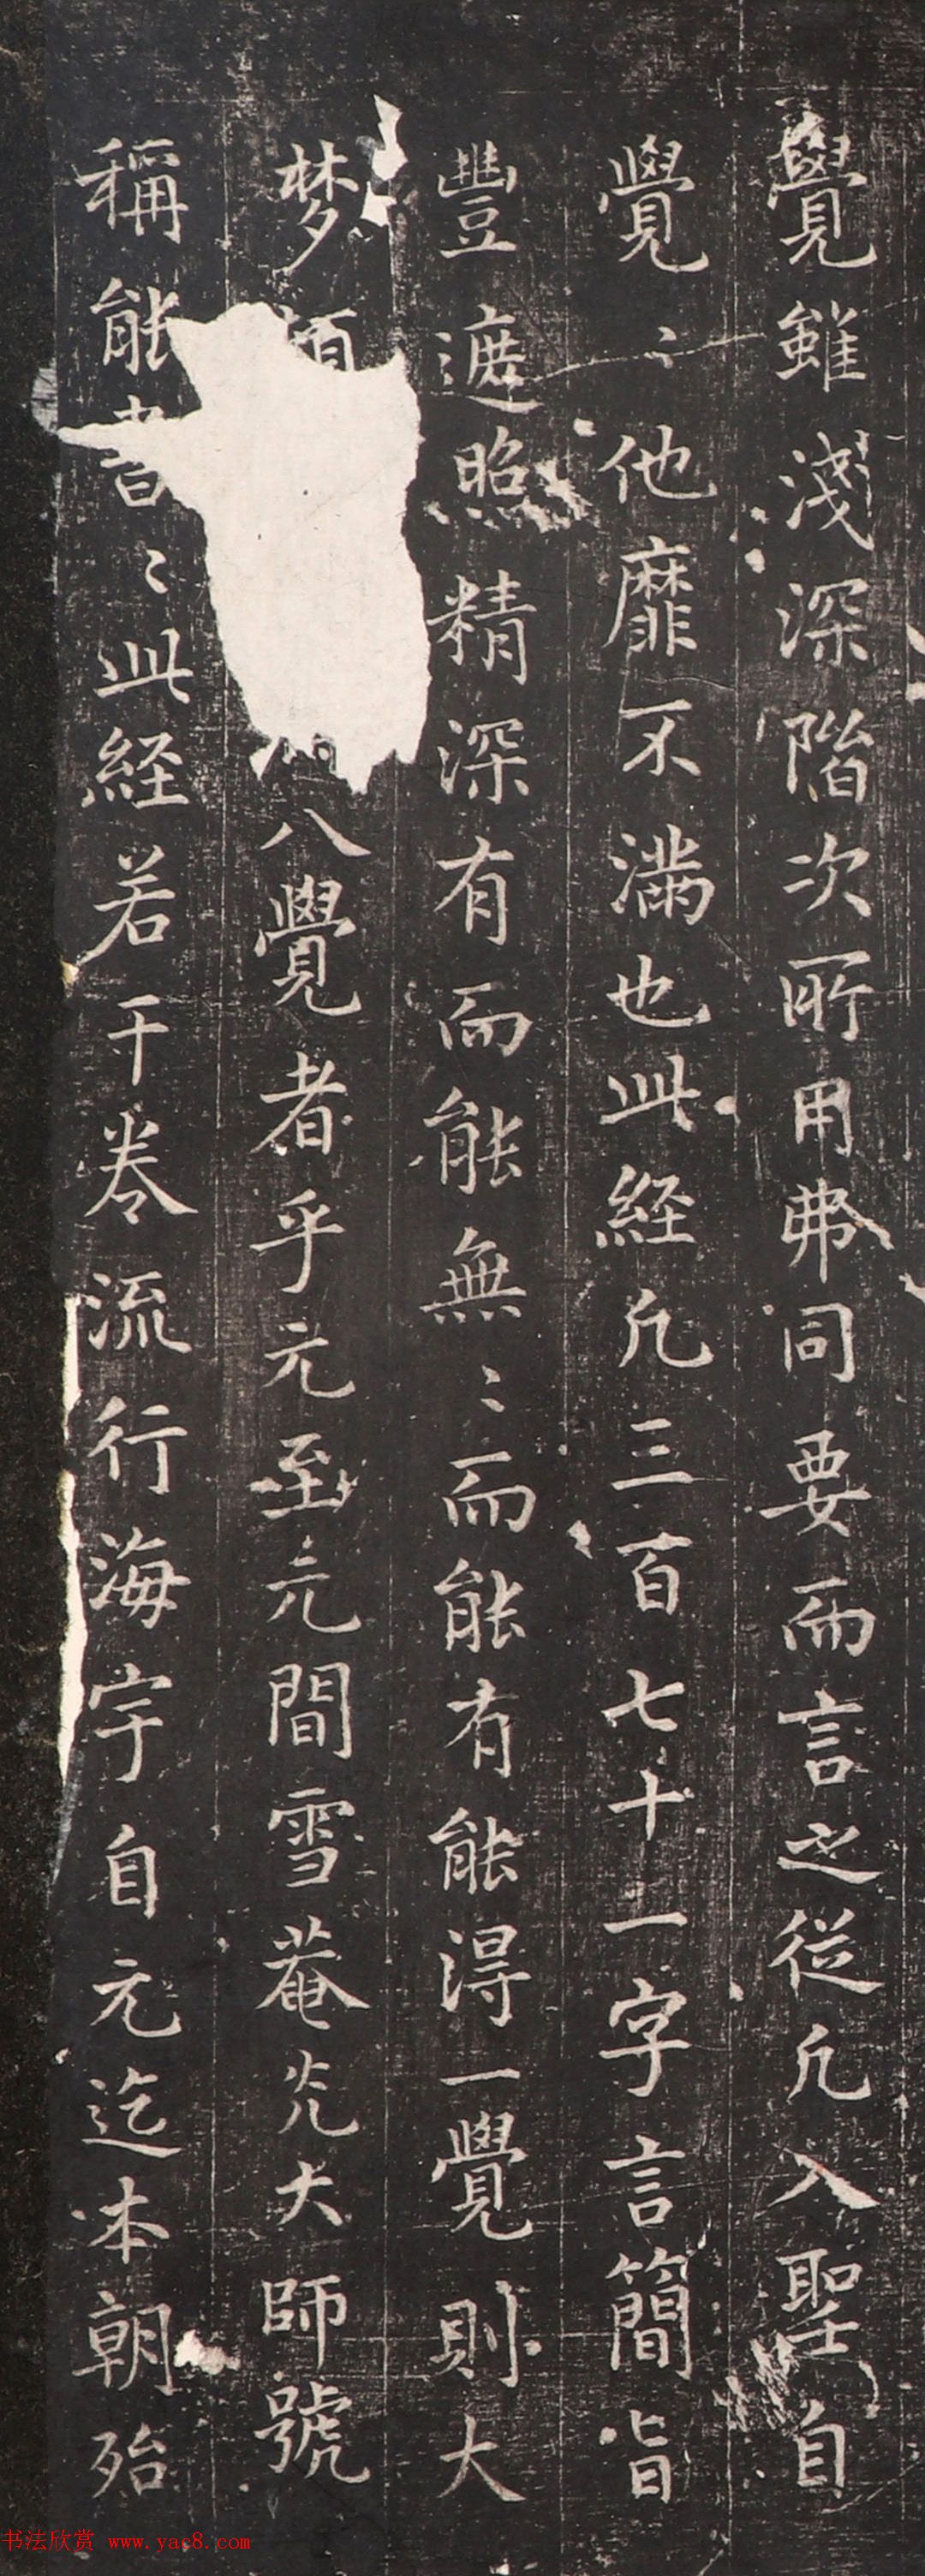 覺雖淺深階次所用弗同要而言之從凡入聖自
覺〻他靡不滿也此経凡三百七十一字言簡旨
豐遮照精深有而能無〻而能有能得一覺則大
梦頓八覺者乎元至元間雪菴光大師號
稱能書〻此経若干卷流行海宇自元迄本朝殆
书法欣赏 www.yac8.com